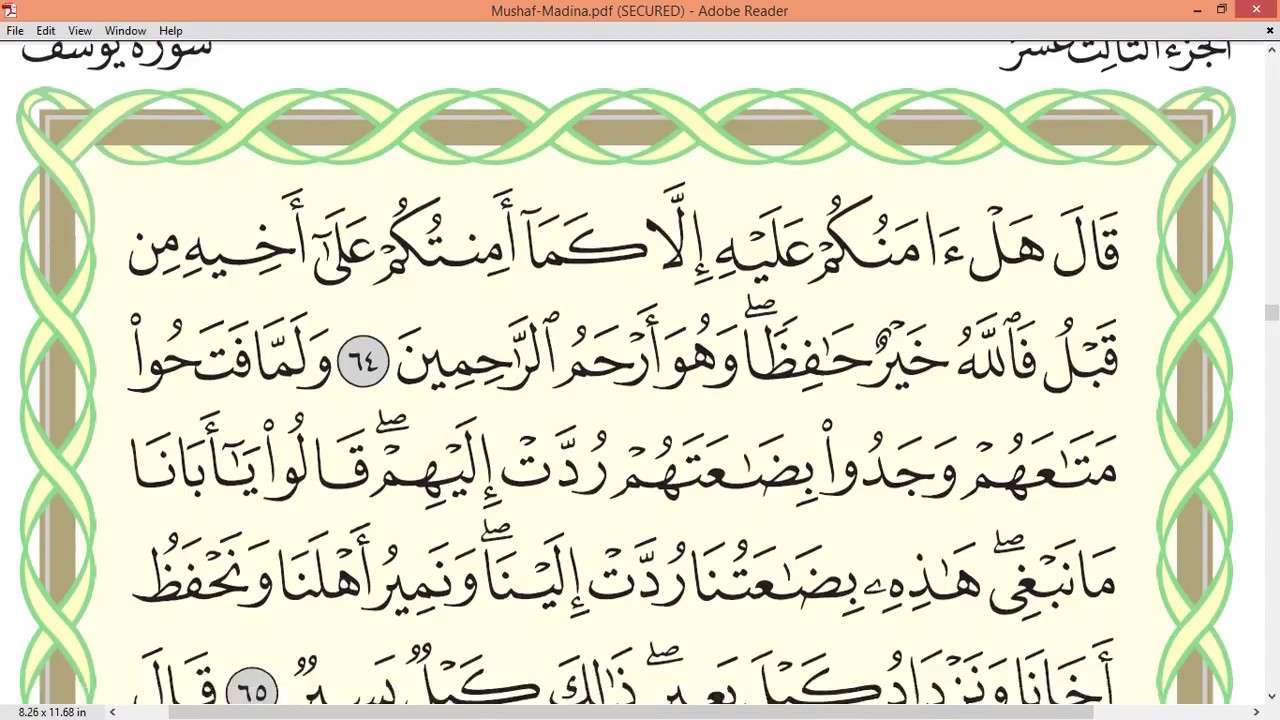 Mushaf-Madina.pdf (SECURED) - Adobe Reader
File Edit View Window Help
الجزء الثالث عشر سورة يوسف
قَالَ هَلْ ءَامَنُكُمْ عَلَيْهِ إِلَّا كَمَآ أَمِنتُكُمْ عَلَىٰٓ أَخِيهِ مِن
قَبْلُ فَٱللَّهُ خَيْرٌ حَـٰفِظًا ۖ وَهُوَ أَرْحَمُ ٱلرَّٰحِمِينَ ٦٤ وَلَمَّا فَتَحُوا۟
مَتَـٰعَهُمْ وَجَدُوا۟ بِضَـٰعَتَهُمْ رُدَّتْ إِلَيْهِمْ ۖ قَالُوا۟ يَـٰٓأَبَانَا
مَا نَبْغِى ۖ هَـٰذِهِۦ بِضَـٰعَتُنَا رُدَّتْ إِلَيْنَا ۖ وَنَمِيرُ أَهْلَنَا وَنَحْفَظُ
أَخَانَا وَنَزْدَادُ كَيْلَ بَعِيرٍ ۖ ذَٰلِكَ كَيْلٌ يَسِيرٌ ٦٥ قَالَ
8.26 x 11.68 in